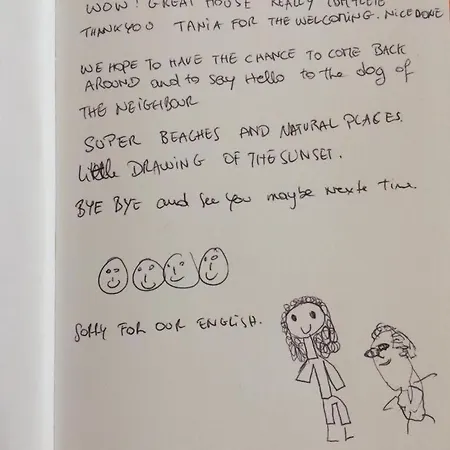 WOW! GREAT HOUSE REALLY COMPLETE
THANKYOU TANIA FOR THE WELCOMING. NICE DONE
WE HOPE TO HAVE THE CHANCE TO COME BACK
AROUND and to say Hello to the dog of
THE NEIGHBOUR
SUPER BEACHES AND NATURAL PLACES.
Little DRAWING OF THE SUNSET.
BYE BYE and see you maybe nexte time.
SORRY FOR OUR ENGLISH.